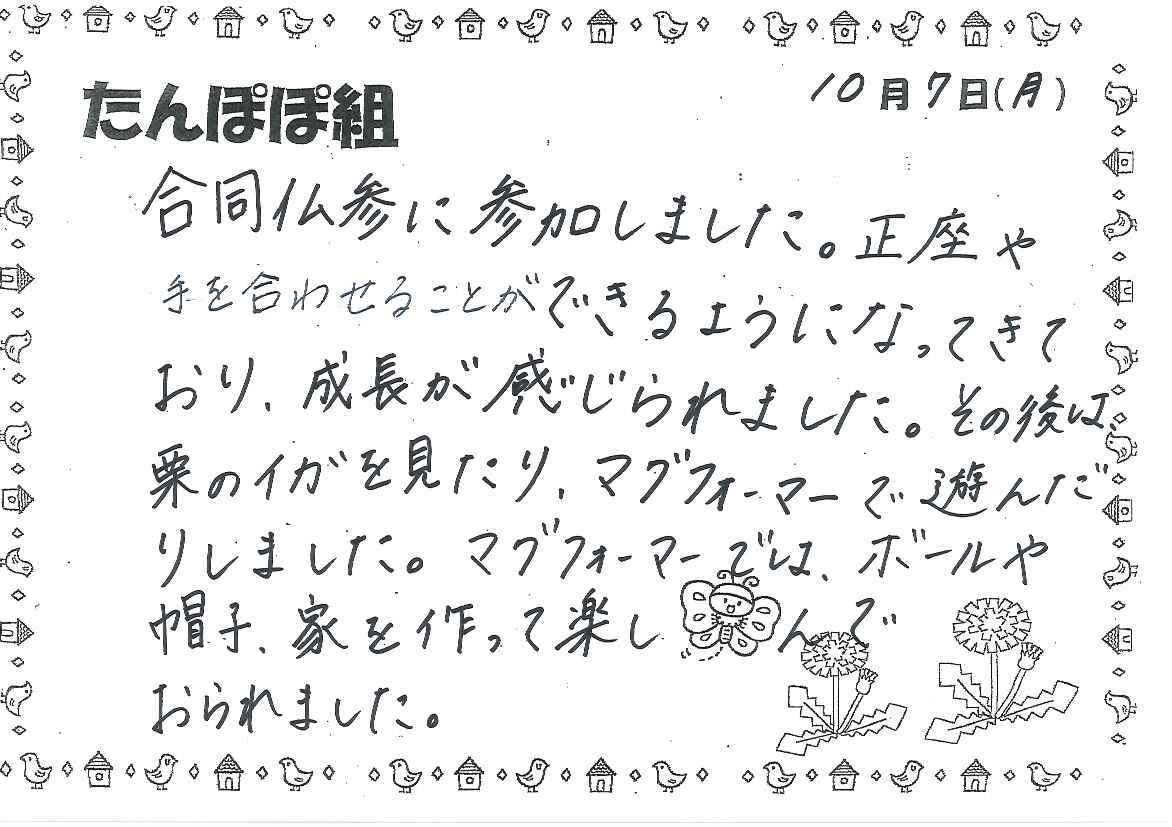 たんぽぽ組
10月7日(月)
合同仏参に参加しました。正座や
手を合わせることができるようになってきて
おり、成長が感じられました。その後は、
栗のイガを見たり、マグフォーマーで遊んだ
りしました。マグフォーマーでは、ボールや
帽子、家を作って楽しんで
おられました。